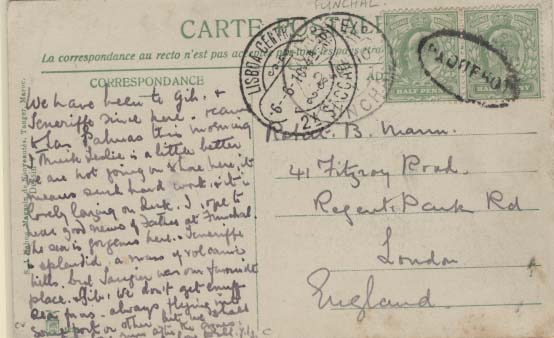 FUNCHAL
CARTE POSTALE
La correspondance au recto n'est pas
CORRESPONDANCE
LISBOA-CENTRAL
2ª SECCÃO
HALF PENNY
HALF PENNY
PAQUEBOT
We have been to Gib. &
Teneriffe since here
Las Palmas this morning
I think Leslie is a little better
we are not going on shore here, it
means such hard work, & it is
lovely lazing on deck. I hope to
hear good news of Father at Funchal.
The sea is gorgeous here. Teneriffe
is splendid, a mass of volcanic
hills, but Tangier was our favourite
place. We don't get enuf
sea for us. always flying into
some port or other, but we shall
B. Mann.
41 Fitzroy Road.
Regents Park Rd
London
England.